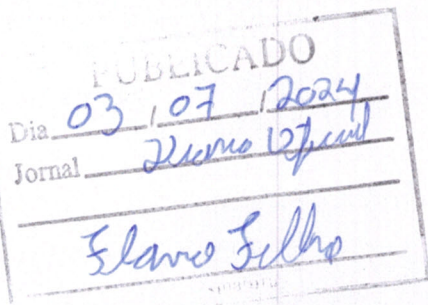 PUBLICADO
Dia 03 / 07 / 2024
Jornal Diario Oficial
Flavio Filho